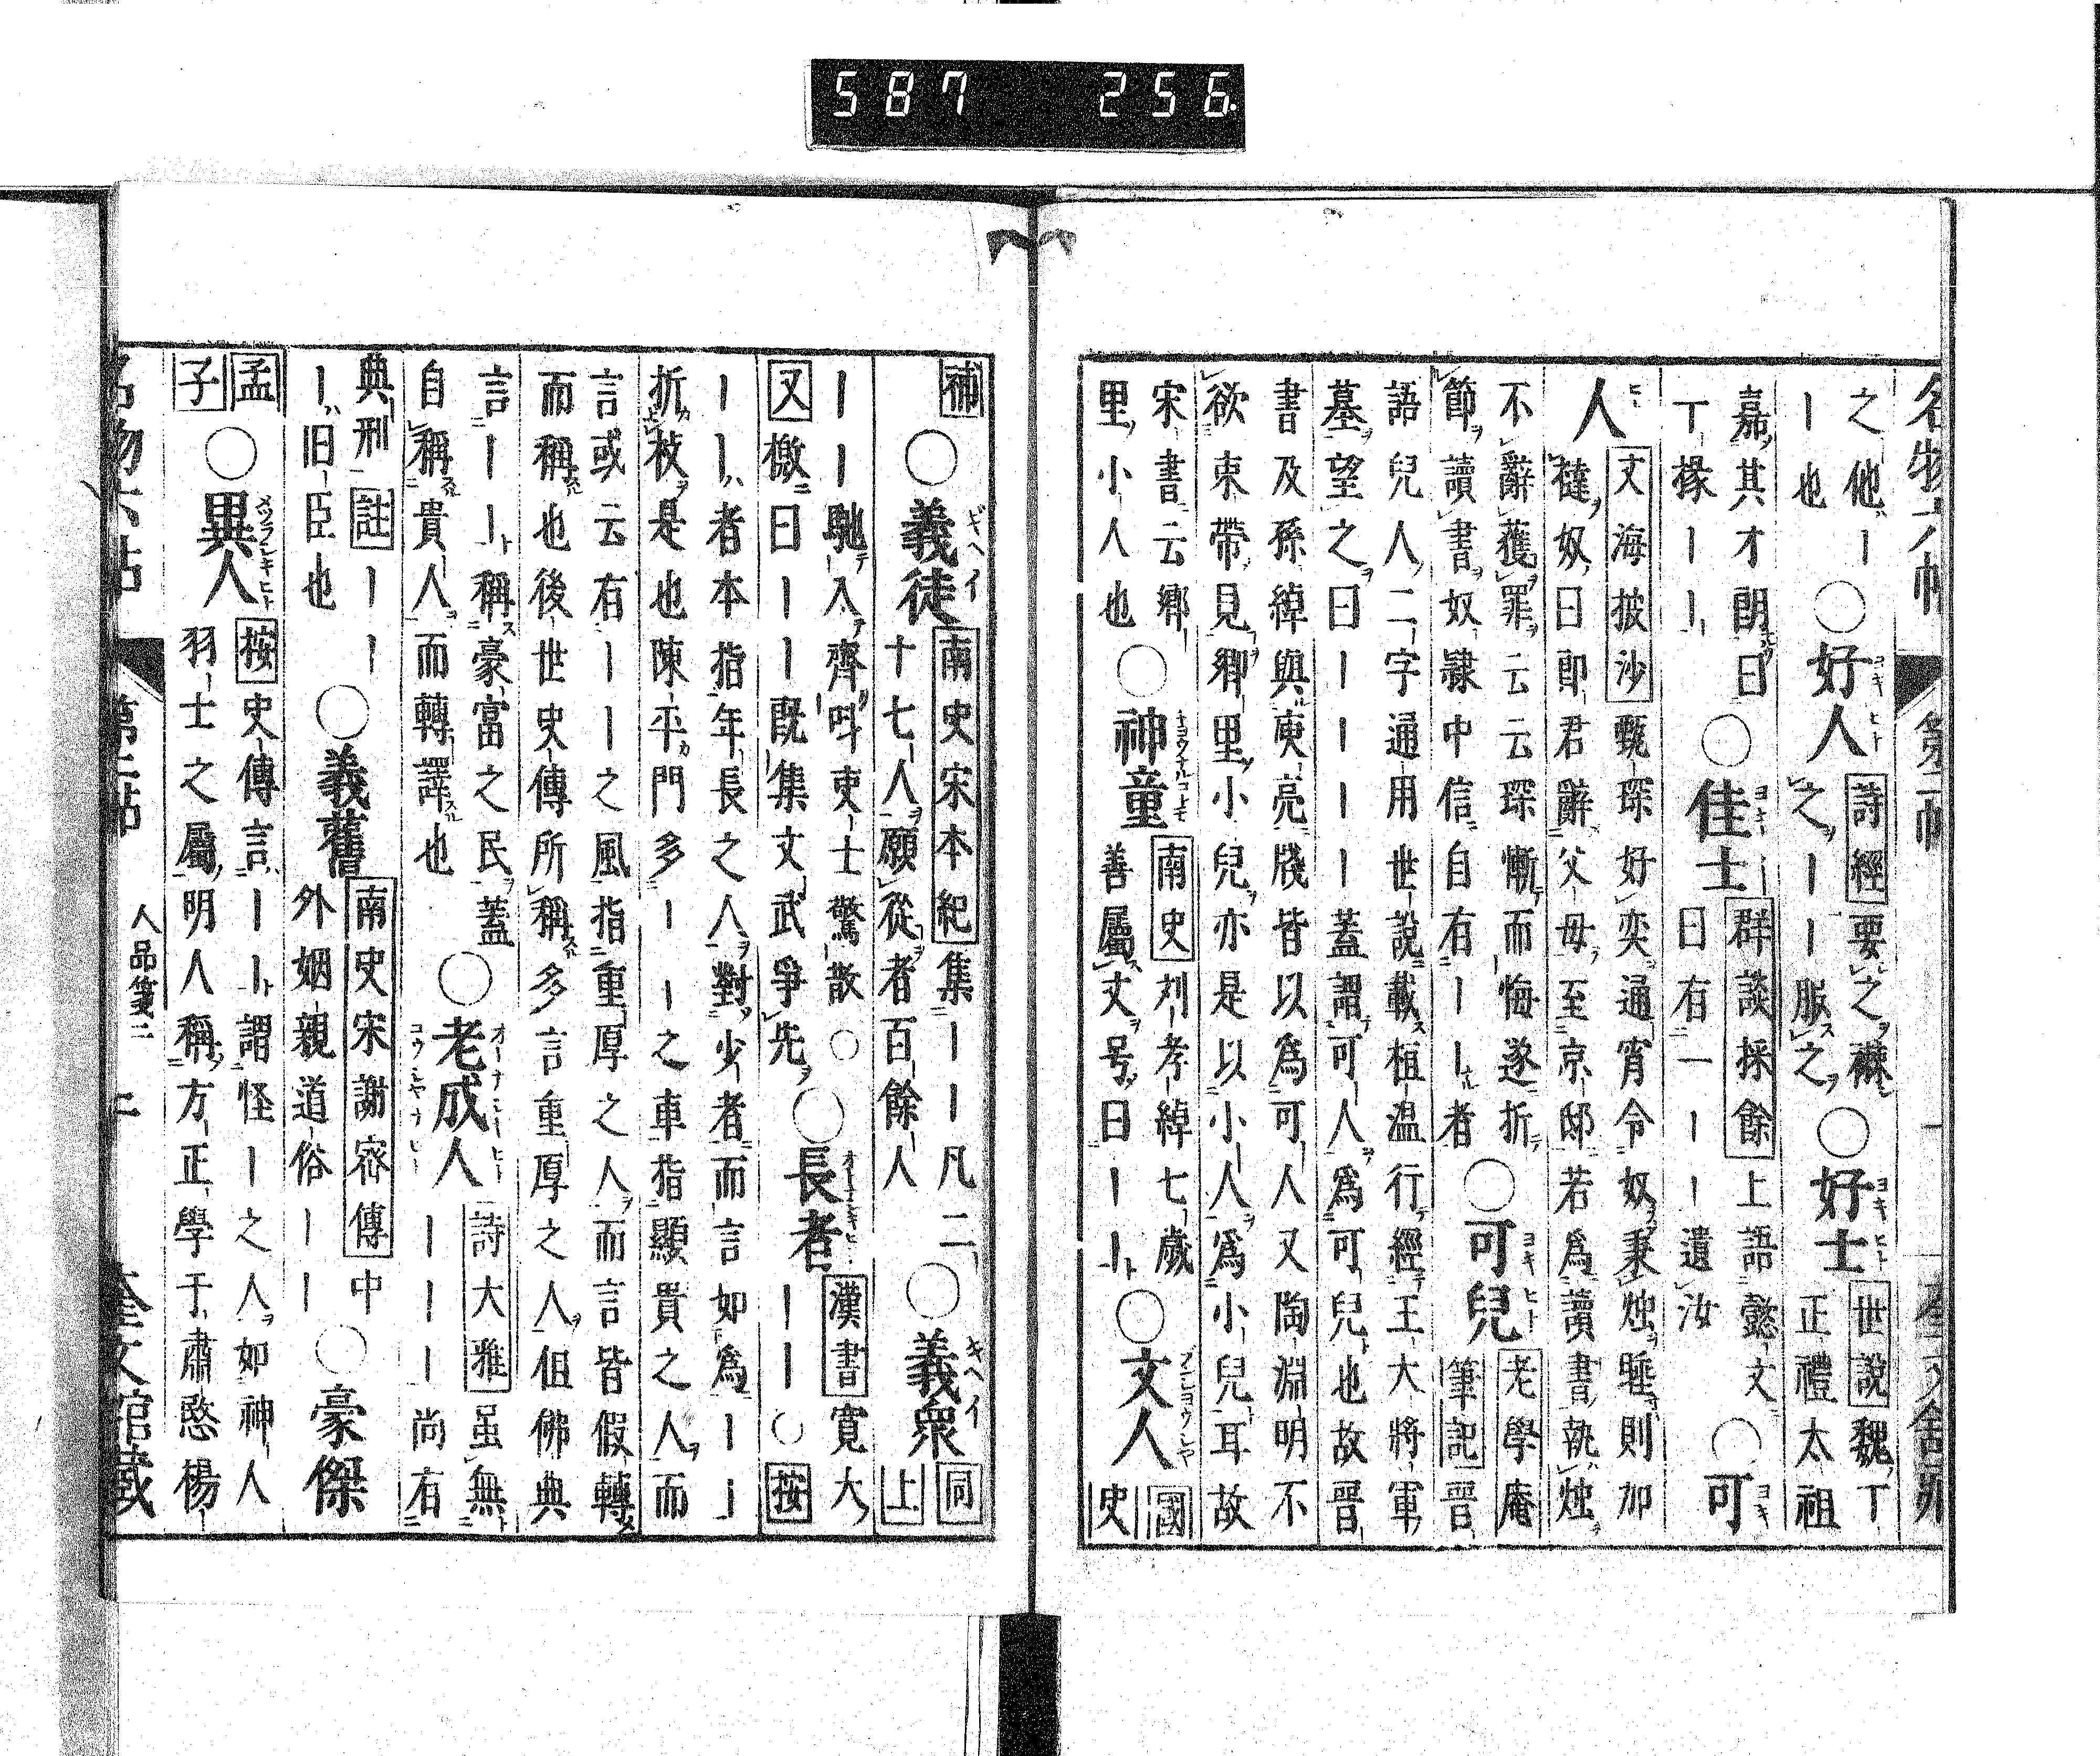 587 256
名物六帖 第二帖 一 奎文館藏
之他〡
〡也
○好人
詩經要之襋
之〡〡服之
○好士
世說魏丁
正禮太祖
嘉其才朗曰
丁掾〡〡
○佳士
群談採餘上語懿文
曰有一〡〡遺汝
○可
人
文海披沙甄琛好奕通宵令奴秉燭睡則加
撻奴曰郎君辭父母至京邸若爲讀書執燭
不辭獲罪云云琛慚而悔遂折
節讀書奴隸中信自有〡〡者
○可兒
老學庵
筆記晉
語兒人二字通用世說載桓溫行經王大將軍
墓望之曰〡〡〡〡蓋謂可人爲可兒也故晉
書及孫綽與庾亮牋皆以爲可人又陶淵明不
欲束帶見鄉里小兒亦是以小人爲小兒耳故
宋書云鄉
里小人也
○神童
南史刘孝綽七歲
善屬文号曰〡〡
○文人
國
史
補
○義徒
南史宋本紀集〡〡凡二
十七人願從者百餘人
○義衆
同
上
〡〡馳入齊呌吏士驚散○
又檄曰〡〡既集文武爭先
○長者
漢書寬大
〡〡○按
〡〡者本指年長之人對少者而言如爲〡〡
折枝是也陳平門多〡〡之車指顯貴之人而
言或云有〡〡之風指重厚之人而言皆假轉
而稱也後世史傳所稱多言重厚之人但佛典
言〡〡稱豪富之民蓋
自稱貴人而轉譯也
○老成人
詩大雅虽無
〡〡〡尚有
典刑註〡〡
〡旧臣也
○義舊
南史宋謝密傳中
外姻親道俗〡〡
○豪傑
孟
子
○異人
按史傳言〡〡謂怪〡之人如神人
羽士之屬明人稱方正學于肅愍楊
名物六帖 第二帖 人品箋二 二 奎文館藏